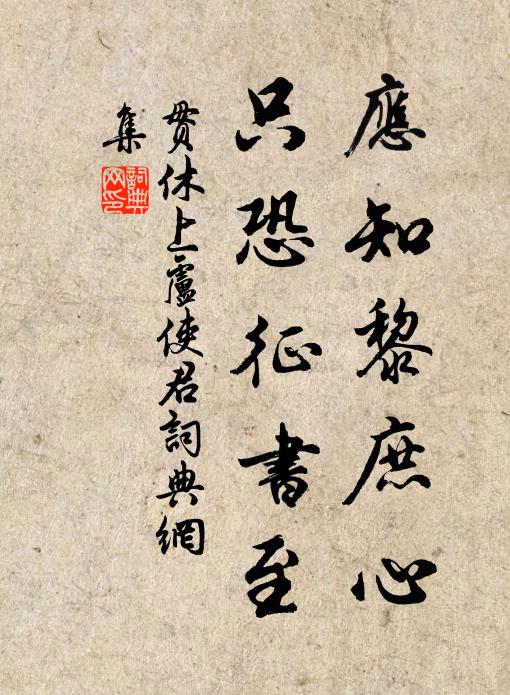 應知黎庶心
只恐征書至
貫休上盧使君詞典網
集
詞典
网印